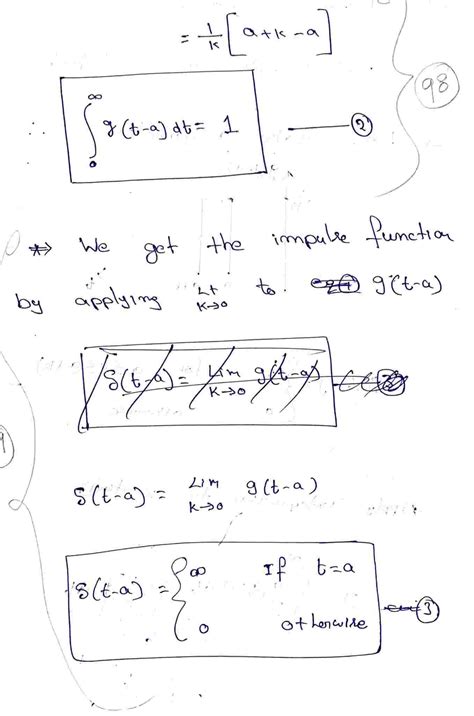 = 1/K [a+K-a]
98
∴ ∫₀^∞ g(t-a) dt = 1 —— ②
* We get the impulse function
by applying Lt K→0 to g(t-a)
δ(t-a) = Lim K→0 g(t-a)
δ(t-a) = Lim K→0 g(t-a)
δ(t-a) = { ∞ If t=a
0 otherwise —③